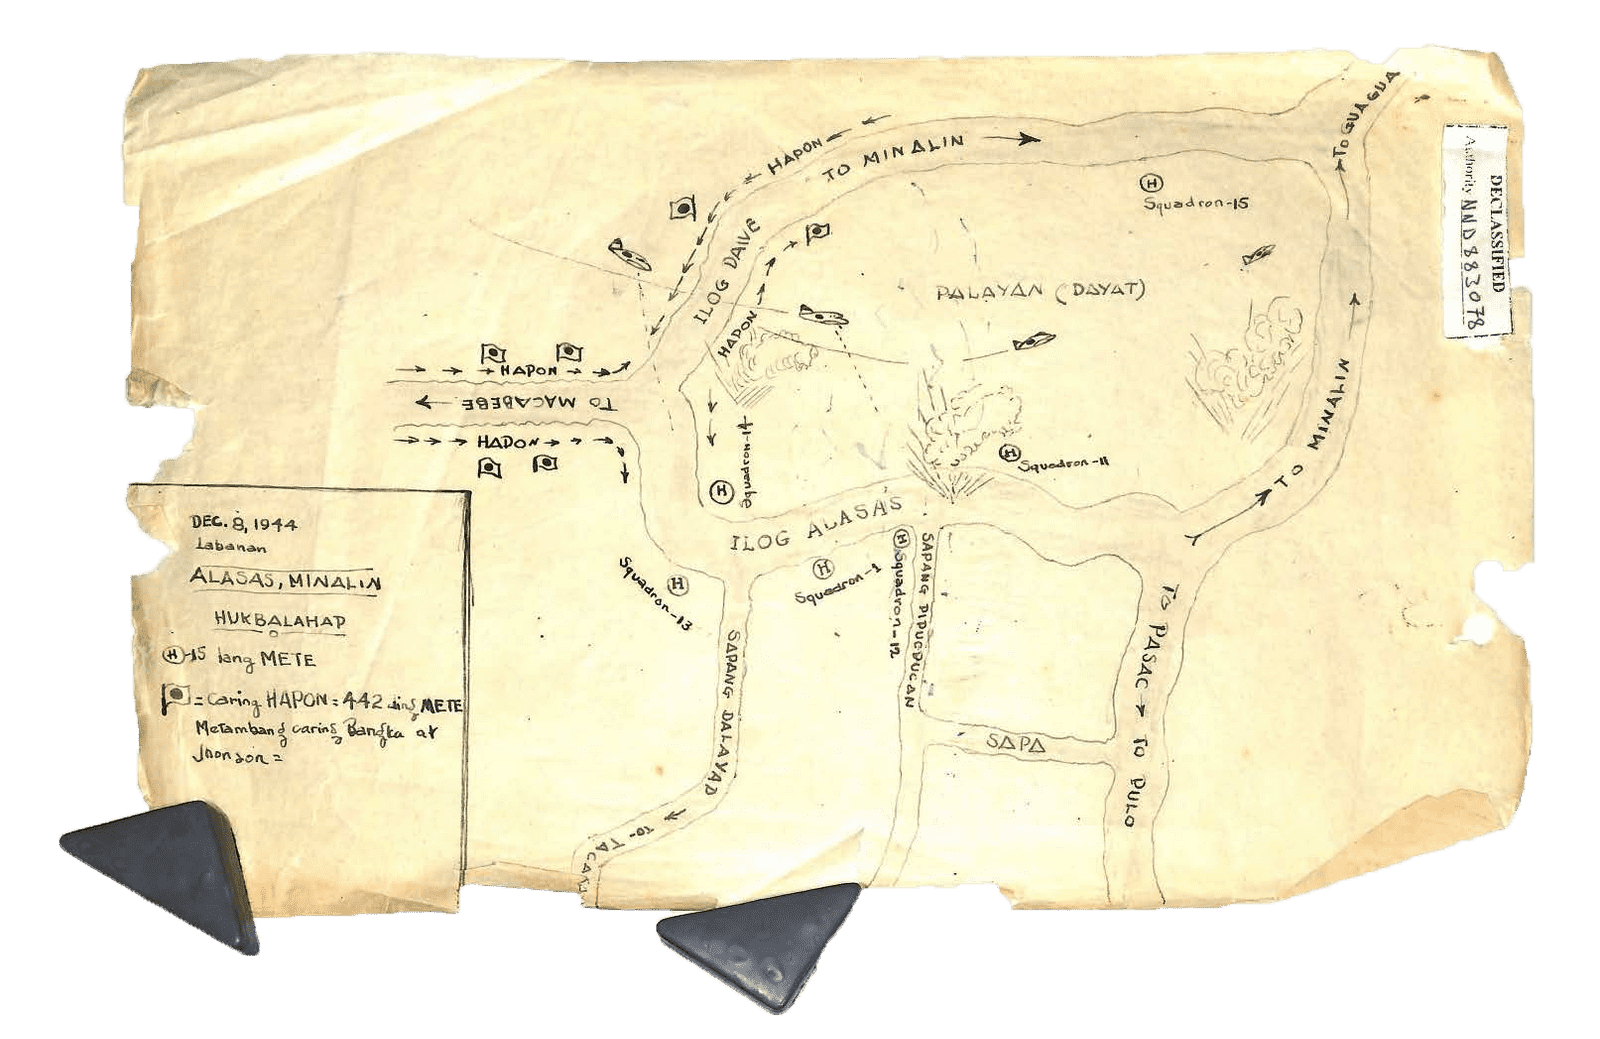 TO GUAGUA
HAPON
TO MINALIN
DECLASSIFIED
Authority NND 883078
H
Squadron-15
ILOG DAIVE
PALAYAN (DAYAT)
HAPON
HAPON
TO MACABEBE
HAPON
TO MINALIN
H
Squadron-14
H
Squadron-11
ILOG ALASAS
H
Squadron-13
H
Squadron-1
H
Squadron-12
SAPANG PIPUGPUGAN
SAPANG DALAYAP
TO PASAC → TO PULO
SAPA
TO-
DEC. 8, 1944
Labanan
ALASAS, MINALIN
HUKBALAHAP
H-15 lang METE
= Caring HAPON = 442 ding METE
Metambang caring Bangka at
Jhonson =